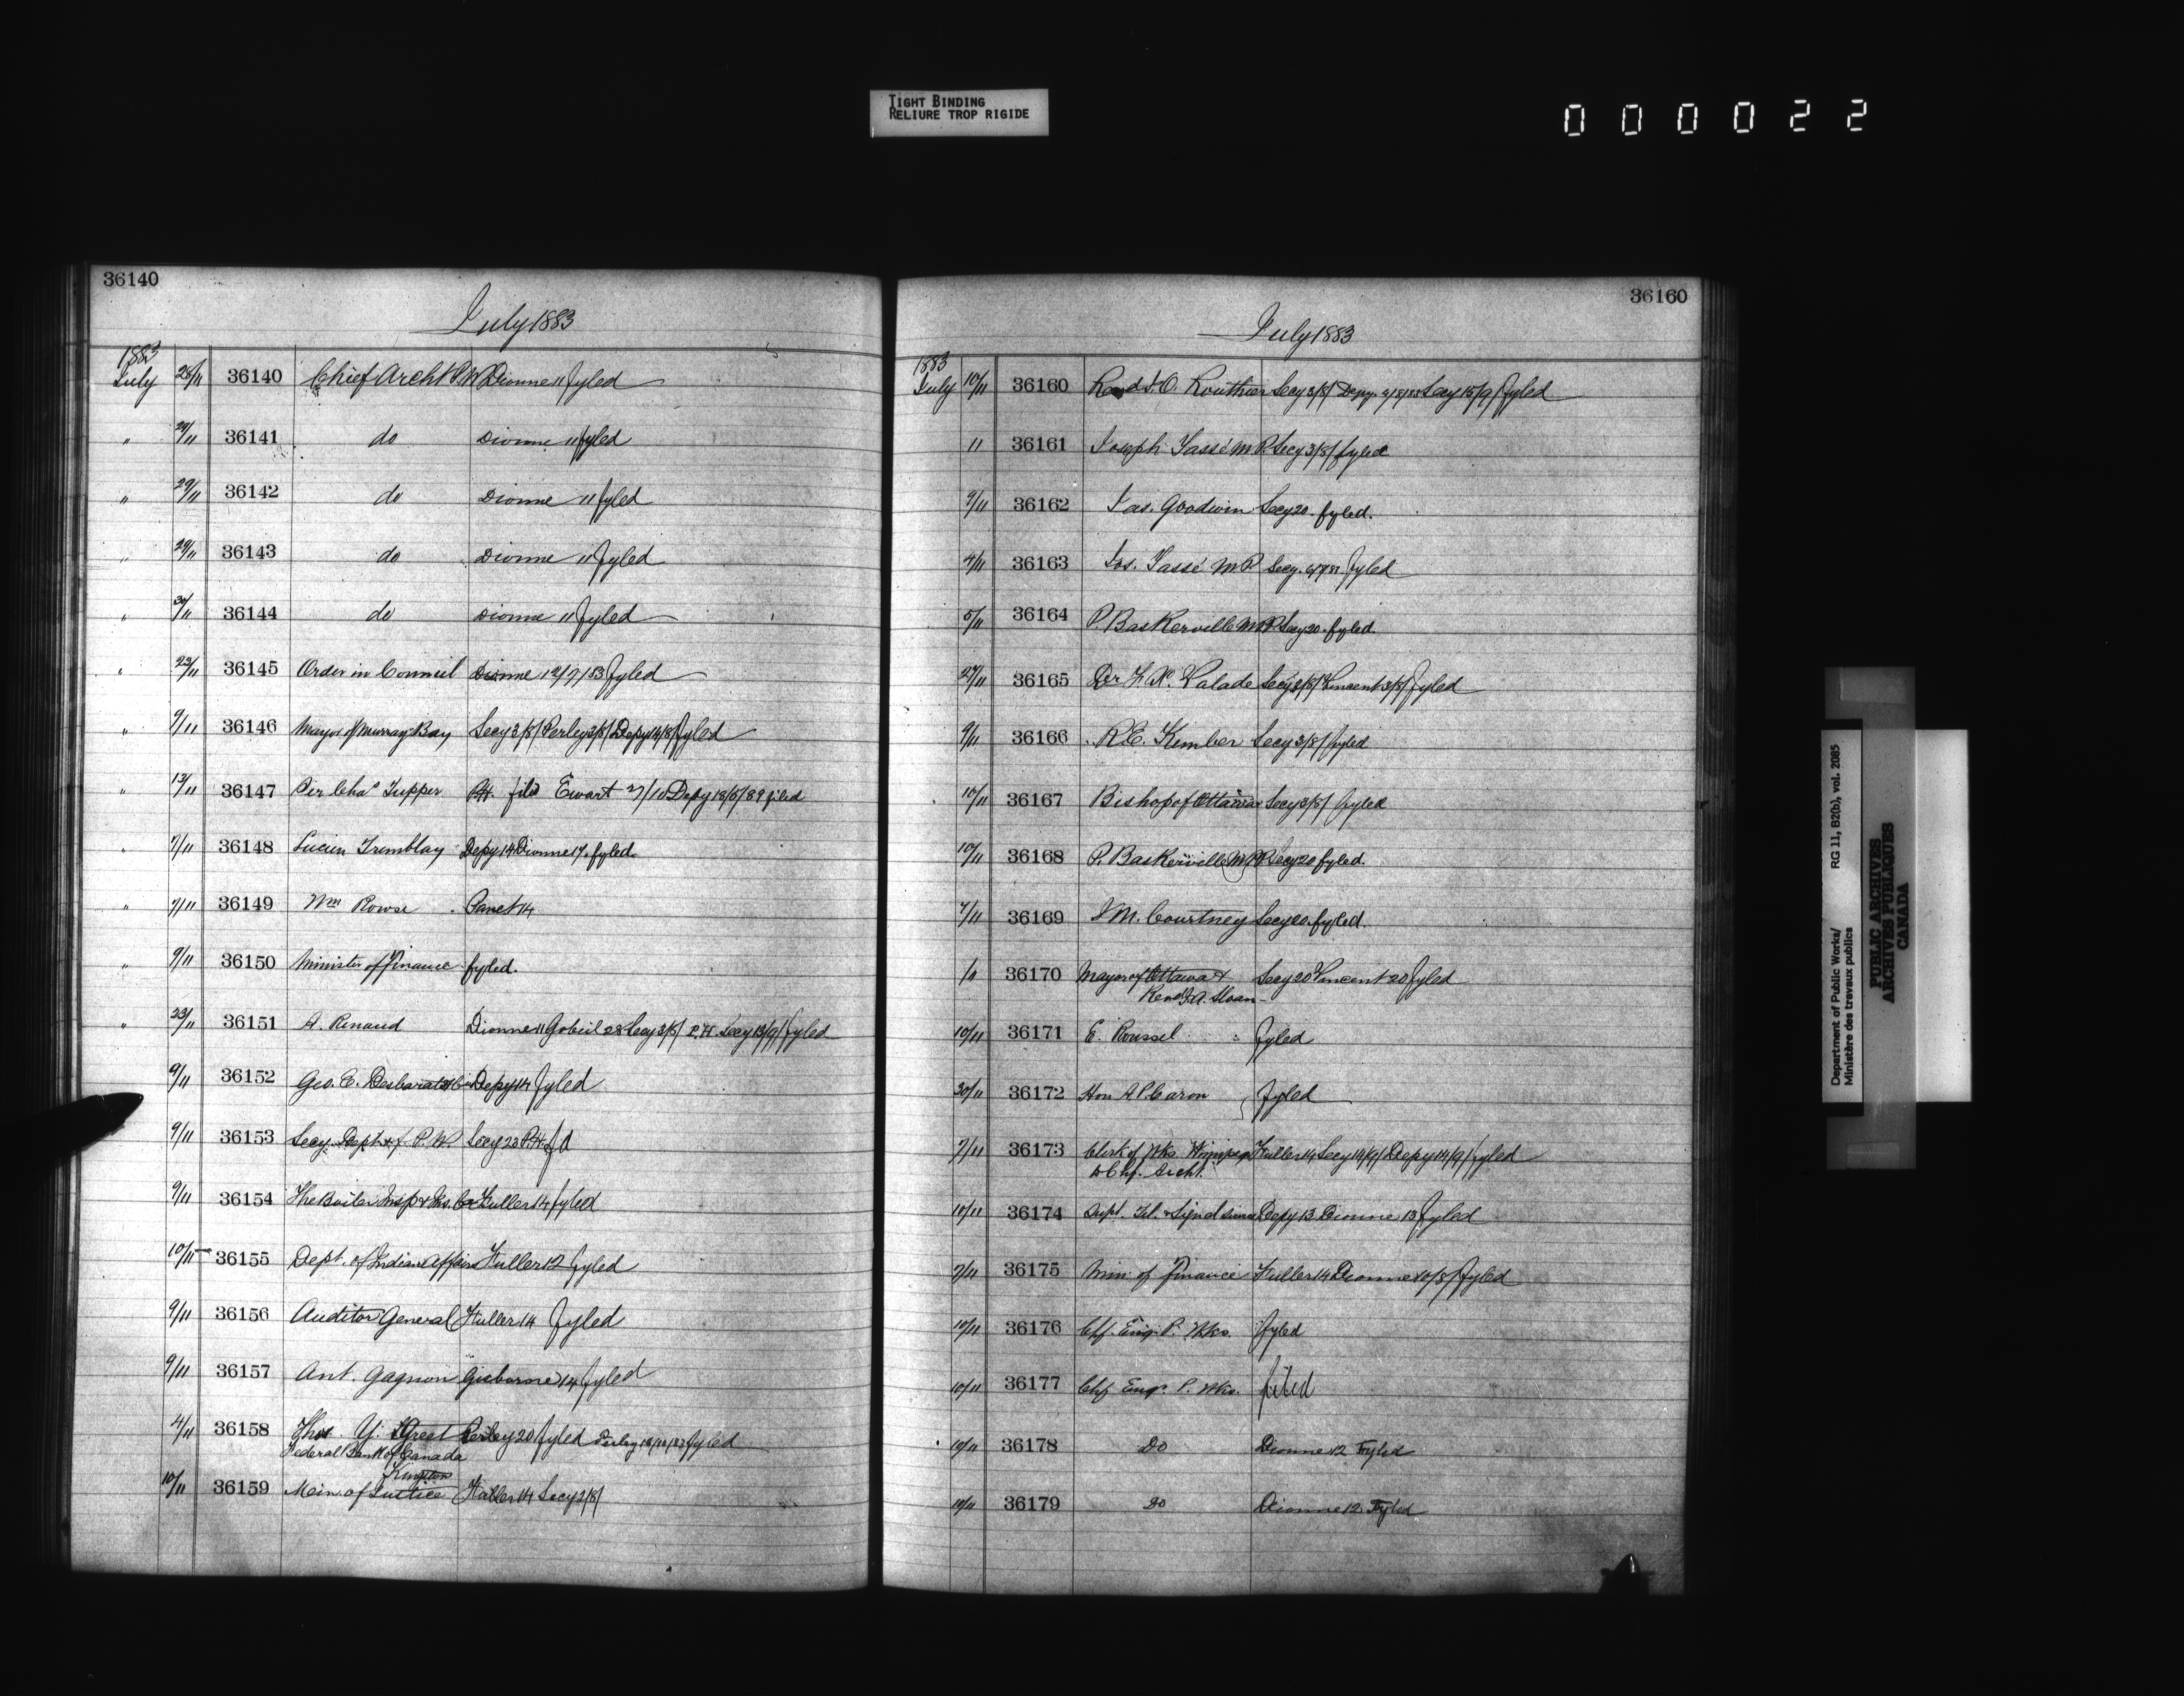 TIGHT BINDING
RELIURE TROP RIGIDE
000022
36140
July 1883
1883
July 28/11 36140 Chief Archt P.W. Dionne 11 fyled
" 29/11 36141 do Dionne 11 fyled
" 29/11 36142 do Dionne 11 fyled
" 29/11 36143 do Dionne 11 fyled
" 30/11 36144 do Dionne 11 fyled
" 23/11 36145 Order in Council Dionne 12/7/83 fyled
" 9/11 36146 Mayor of Murray Bay Secy 3/8/ Perley 3/8/ Depy 14/8/ fyled
" 13/11 36147 Sir Chas Tupper P.H. filed Ewart 27/10 Depy 18/6/89 filed
" 7/11 36148 Lucien Tremblay Depy 14 Dionne 17. fyled.
" 7/11 36149 Wm Rowse Panet 14
" 9/11 36150 Minister of Finance fyled.
" 23/11 36151 A. Renaud Dionne 11 Gobeil 28 Secy 3/8/ P.H. Secy 13/9/ fyled
9/11 36152 Geo. E. Desbarats & Co Depy 14 fyled
9/11 36153 Secy. Dept of P.W. Secy 23 P.H.
9/11 36154 The Boiler Insp & Ins. Co Fuller 14 fyled
10/11 36155 Dept. of Indian Affairs Fuller 12 fyled
9/11 36156 Auditor General Fuller 14 fyled
9/11 36157 Ant. Gagnon Gisborne 14 fyled
4/11 36158 Thos. Y. Greet Perley 20 fyled Perley fyled
Federal Bank of Canada
Kingston
10/11 36159 Min. of Justice Fuller 14 Secy 2/8/
36160
July 1883
1883
July 10/11 36160 Revd J.O. Routhier Secy 3/8/ Depy. 9/8/83 Secy 15/9/ fyled
11 36161 Joseph Tassé M.P. Secy 3/8/ fyled
9/11 36162 Jas. Goodwin Secy 20. fyled.
4/11 36163 Jos. Tassé M P Secy. fyled
5/11 36164 P. Baskerville M.P. Secy 20. fyled.
27/11 36165 Dr F.X. Valade Secy 3/8/ Vincent 3/8/ fyled
9/11 36166 R.E. Kimber Secy 3/8/ fyled
10/11 36167 Bishop of Ottawa Secy 3/8/ fyled
10/11 36168 P. Baskerville M.P. Secy 20 fyled.
7/11 36169 J M. Courtney Secy 20. fyled.
36170 Mayor of Ottawa & Secy 20 Vincent 20 fyled
Revd J.A. Sloan
10/11 36171 E. Roussel fyled
30/11 36172 Hon A P Caron fyled
7/11 36173 Clerk of Wks. Winnipeg Fuller 14 Secy 14/9/ Depy 14/9/ fyled
& Chf. Archt.
10/11 36174 Supt. Tel. & Signal Service Depy 13 Dionne 13 fyled
7/11 36175 Min of Finance Fuller 14 Dionne 20/8/ fyled
10/11 36176 Chf. Eng. P. Wks. fyled
10/11 36177 Chf Engr. P. Wks. filed
10/11 36178 Do Dionne 12 Fyled
10/11 36179 Do Dionne 12 Fyled
Department of Public Works/ RG 11, B2(b), vol. 2085
Ministère des travaux publics
PUBLIC ARCHIVES
ARCHIVES PUBLIQUES
CANADA